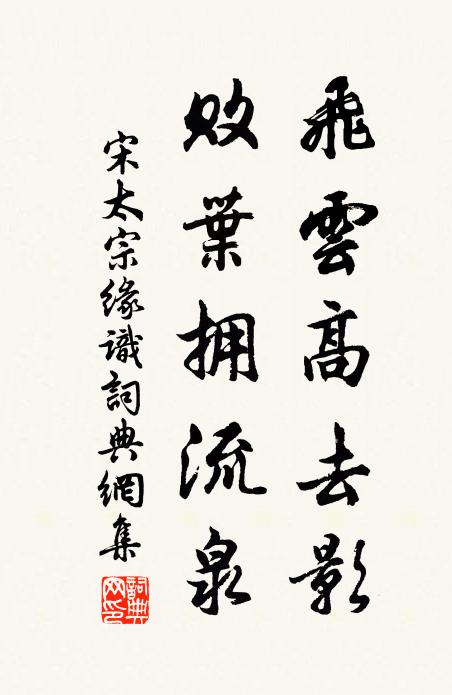 飛雲高去影
敗葉擁流泉
宋太宗緣識詞典網集
詞典網印